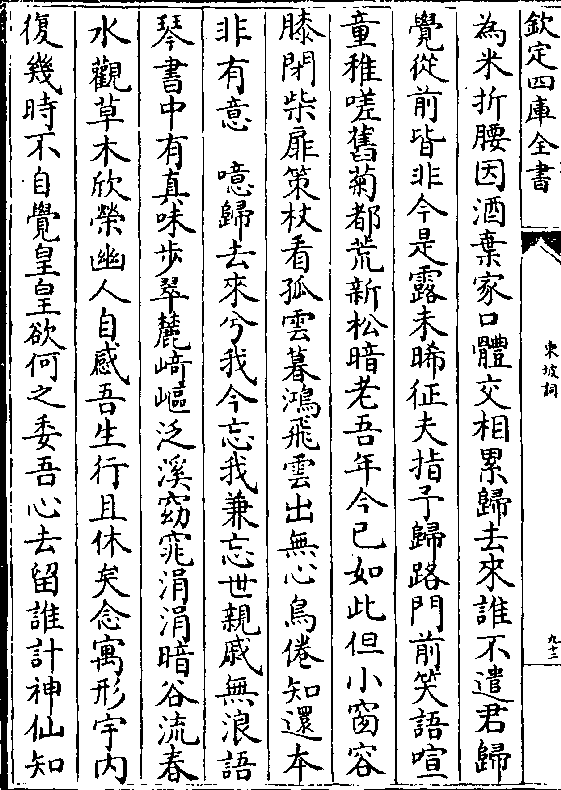 欽定四庫全書
東坡詞
九十三
為米折腰因酒棄家口體交相累歸去來誰不遣君歸
覺從前皆非今是露未晞征夫指予歸路門前笑語喧
童稚嗟舊菊都荒新松暗老吾年今已如此但小窗容
膝閉柴扉策杖看孤雲暮鴻飛雲出無心鳥倦知還本
非有意　噫歸去來兮我今忘我兼忘世親戚無浪語
琴書中有真味步翠麓崎嶇泛溪窈窕涓涓暗谷流春
水觀草木欣榮幽人自感吾生行且休矣念寓形宇内
復幾時不自覺皇皇欲何之委吾心去留誰計神仙知